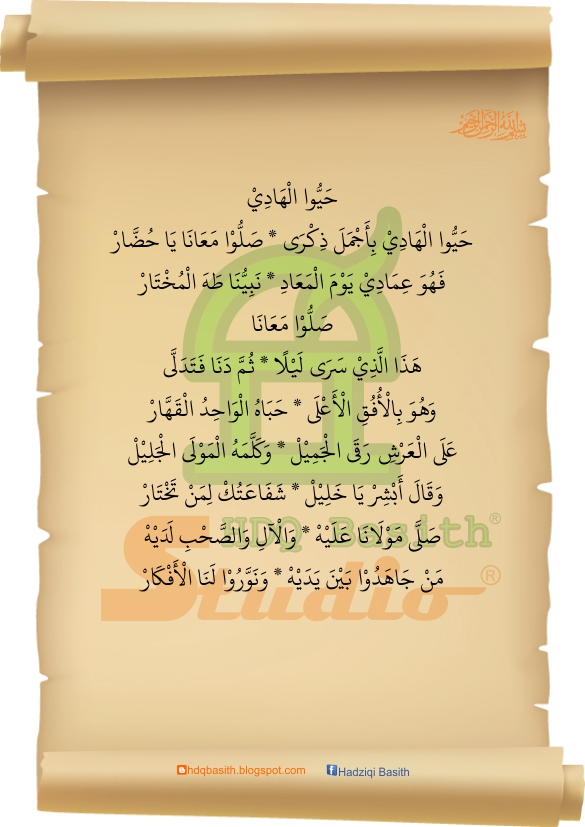 بسم الله الرحمن الرحيم
حَيُّوا الْهَادِيْ
حَيُّوا الْهَادِيْ بِأَجْمَلَ ذِكْرَى * صَلُّوْا مَعَانَا يَا حُضَّارْ
فَهُوَ عِمَادِيْ يَوْمَ الْمَعَادِ * نَبِيُّنَا طَهَ الْمُخْتَارْ
صَلُّوْا مَعَانَا
هَذَا الَّذِيْ سَرَى لَيْلًا * ثُمَّ دَنَا فَتَدَلَّى
وَهُوَ بِالْأُفُقِ الْأَعْلَى * حَبَاهُ الْوَاحِدُ الْقَهَّارْ
عَلَى الْعَرْشِ رَقَى الْجَمِيْلْ * وَكَلَّمَهُ الْمَوْلَى الْجَلِيْلْ
وَقَالَ أَبْشِرْ يَا خَلِيْلْ * شَفَاعَتُكْ لِمَنْ تَخْتَارْ
صَلَّى مَوْلَانَا عَلَيْهْ * وَالْآلِ وَالصَّحْبِ لَدَيْهْ
مَنْ جَاهَدُوْا بَيْنَ يَدَيْهْ * وَنَوَّرُوْا لَنَا الْأَفْكَارْ
HDQ Basith®
Studio®
hdqbasith.blogspot.com
Hadziqi Basith